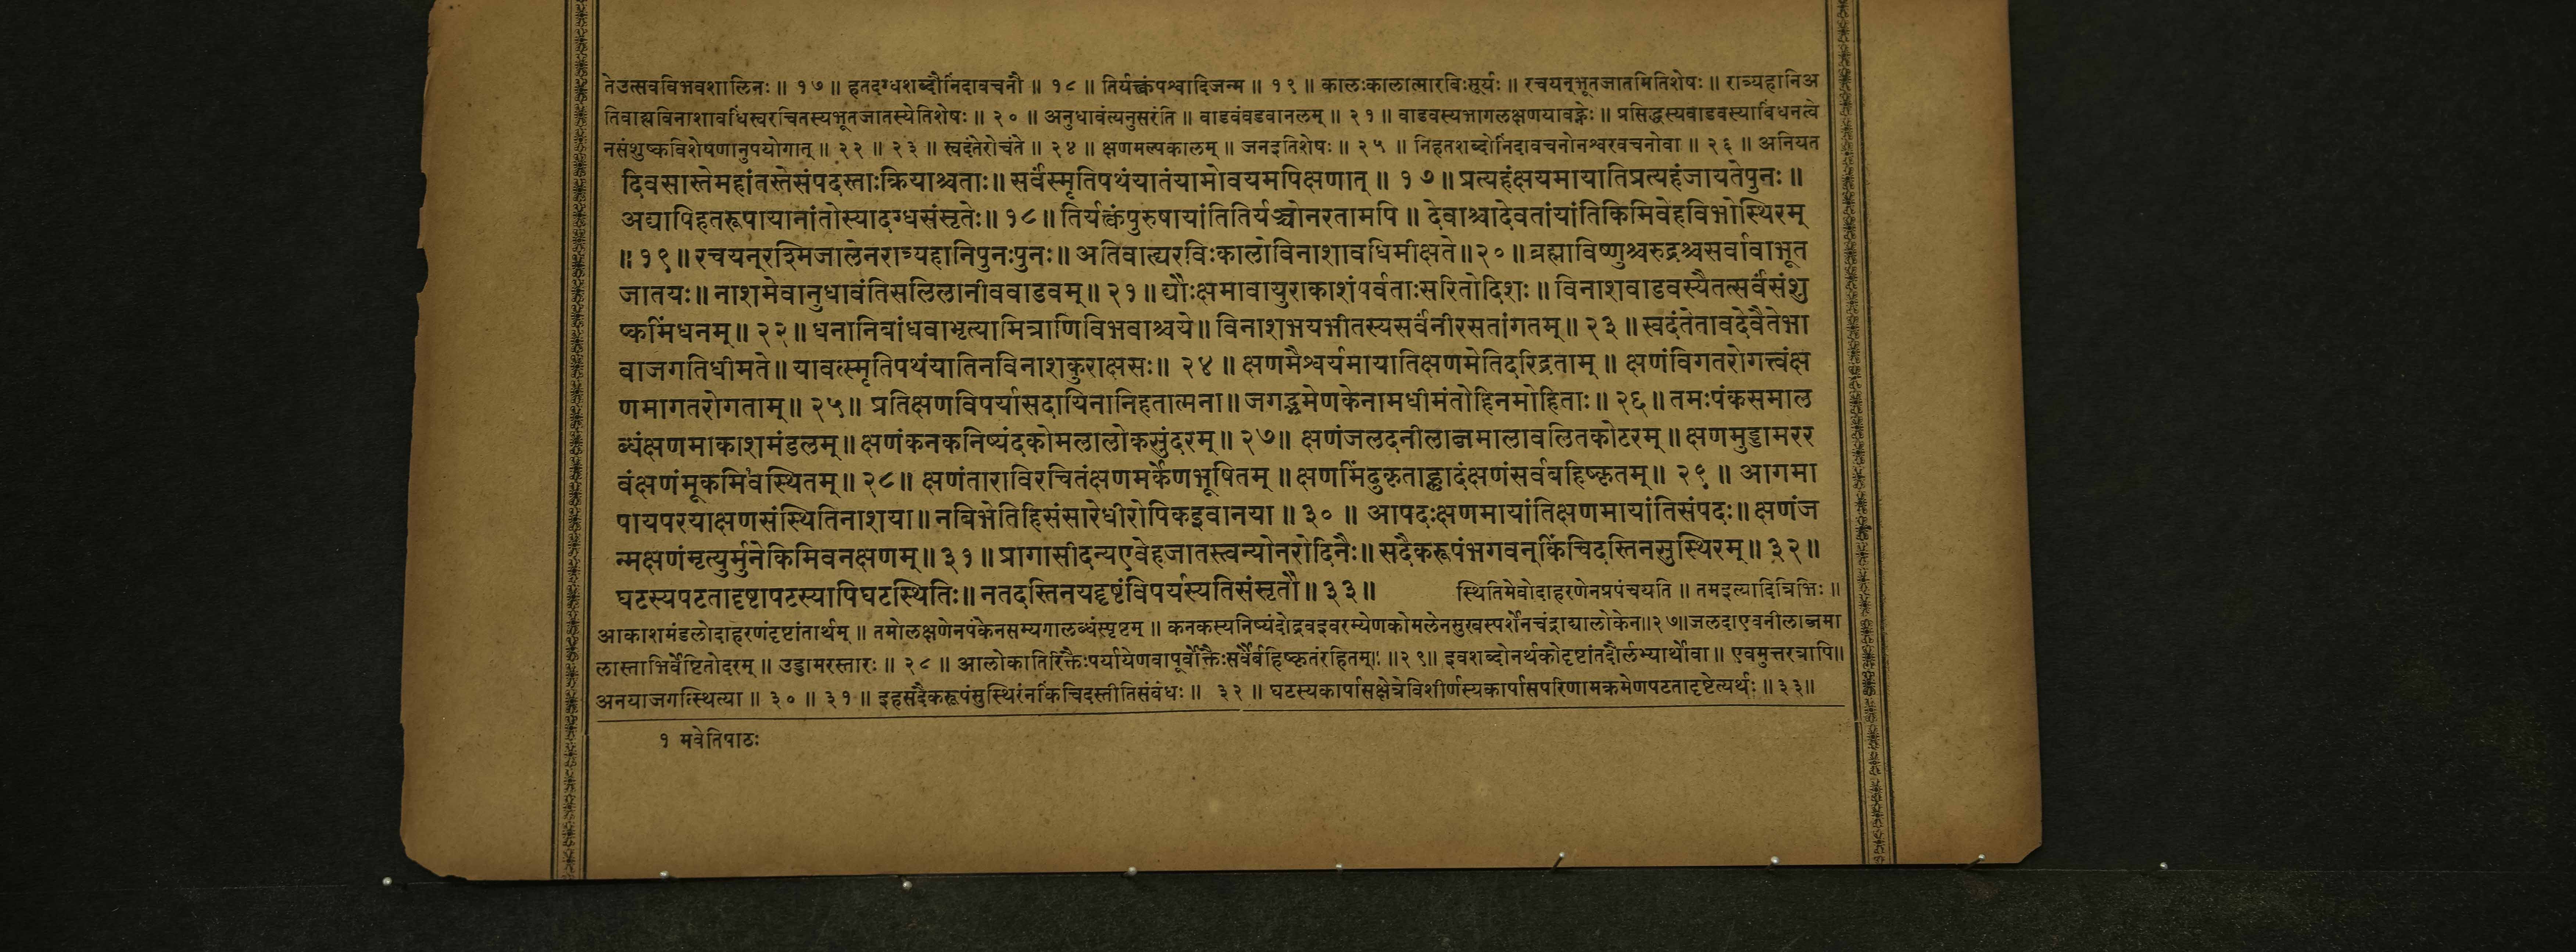 तेउत्सवविभवशालिनः ॥ १७ ॥ हतदग्धशब्दौनिंदावचनौ ॥ १८ ॥ तिर्यक्त्वंपश्वादिजन्म ॥ १९ ॥ कालःकालात्मारविःसूर्यः ॥ रचयन्भूतजातमितिशेषः ॥ रात्र्यहानिअ
तिवाह्यविनाशावधिंस्वरचितस्यभूतजातस्येतिशेषः ॥ २० ॥ अनुधावंत्यनुसरंति ॥ वाडवंवडवानलम् ॥ २१ ॥ वाडवस्यभागलक्षणयावह्नेः ॥ प्रसिद्धस्यवाडवस्याबिंधनत्वे
नसंशुष्कविशेषणानुपयोगात् ॥ २२ ॥ २३ ॥ स्वदंतेरोचंते ॥ २४ ॥ क्षणमल्पकालम् ॥ जनइतिशेषः ॥ २५ ॥ निहतशब्दोनिंदावचनोनश्वरवचनोवा ॥ २६ ॥ अनियत
दिवसास्तेमहांतस्तेसंपदस्ताःक्रियाश्चताः ॥ सर्वंस्मृतिपथंयातंयामोवयमपिक्षणात् ॥ १७ ॥ प्रत्यहंक्षयमायातिप्रत्यहंजायतेपुनः ॥
अद्यापिहतरूपायानांतोस्यादग्धसंसृतेः ॥ १८ ॥ तिर्यक्त्वंपुरुषायांतितिर्यञ्चोनरतामपि ॥ देवाश्चादेवतांयांतिकिमिवेहविभोस्थिरम्
॥ १९ ॥ रचयन्रश्मिजालेनरात्र्यहानिपुनःपुनः ॥ अतिवाह्यरविःकालोविनाशावधिमीक्षते ॥ २० ॥ ब्रह्माविष्णुश्चरुद्रश्चसर्वावाभूत
जातयः ॥ नाशमेवानुधावंतिसलिलानीववाडवम् ॥ २१ ॥ द्यौःक्षमावायुराकाशंपर्वताःसरितोदिशः ॥ विनाशवाडवस्यैतत्सर्वंसंशु
ष्कमिंधनम् ॥ २२ ॥ धनानिबांधवाभृत्यामित्राणिविभवाश्चये ॥ विनाशभयभीतस्यसर्वंनीरसतांगतम् ॥ २३ ॥ स्वदंतेतावदेवैतेभा
वाजगतिधीमते ॥ यावत्स्मृतिपथंयातिनविनाशकुराक्षसः ॥ २४ ॥ क्षणमैश्वर्यमायातिक्षणमेतिदरिद्रताम् ॥ क्षणंविगतरोगत्वंक्ष
णमागतरोगताम् ॥ २५ ॥ प्रतिक्षणविपर्यासदायिनानिहतात्मना ॥ जगद्भ्रमेणकेनामधीमंतोहिनमोहिताः ॥ २६ ॥ तमःपंकसमाल
ब्धंक्षणमाकाशमंडलम् ॥ क्षणंकनकनिष्यंदकोमलालोकसुंदरम् ॥ २७ ॥ क्षणंजलदनीलाब्जमालावलितकोटरम् ॥ क्षणमुड्डामरर
वंक्षणंमूकमि१वस्थितम् ॥ २८ ॥ क्षणंताराविरचितंक्षणमर्केणभूषितम् ॥ क्षणमिंदुकृताह्लादंक्षणंसर्वबहिष्कृतम् ॥ २९ ॥ आगमा
पायपरयाक्षणसंस्थितिनाशया ॥ नबिभेतिहिसंसारेधीरोपिकइवानया ॥ ३० ॥ आपदःक्षणमायांतिक्षणमायांतिसंपदः ॥ क्षणंज
न्मक्षणंमृत्युर्मुनेकिमिवनक्षणम् ॥ ३१ ॥ प्रागासीदन्यएवेहजातस्त्वन्योनरोदिनैः ॥ सदैकरूपंभगवन्किंचिदस्तिनसुस्थिरम् ॥ ३२ ॥
घटस्यपटतादृष्टापटस्यापिघटस्थितिः ॥ नतदस्तिनयद्दृष्टंविपर्यस्यतिसंसृतौ ॥ ३३ ॥ स्थितिमेवोदाहरणेनप्रपंचयति ॥ तमइत्यादित्रिभिः ॥
आकाशमंडलोदाहरणंदृष्टांतार्थम् ॥ तमोलक्षणेनपंकेनसम्यगालब्धंस्पृष्टम् ॥ कनकस्यनिष्यंदोद्रवइवरम्येणकोमलेनसुखस्पर्शेनचंद्राद्यालोकेन॥२७॥जलदाएवनीलाब्जमा
लास्ताभिर्वेष्टितोदरम् ॥ उड्डामरस्तारः ॥ २८ ॥ आलोकातिरिक्तैःपर्यायेणवापूर्वोक्तैःसर्वैर्बहिष्कृतंरहितम् ॥२९॥ इवशब्दोनर्थकोदृष्टांतदौर्लभ्यार्थोवा ॥ एवमुत्तरत्रापि॥
अनयाजगत्स्थित्या ॥ ३० ॥ ३१ ॥ इहसदैकरूपंसुस्थिरंनकिंचिदस्तीतिसंबंधः ॥ ३२ ॥ घटस्यकार्पासक्षेत्रेविशीर्णस्यकार्पासपरिणामक्रमेणपटतादृष्टेत्यर्थः ॥ ३३॥
१ मवेतिपाठः